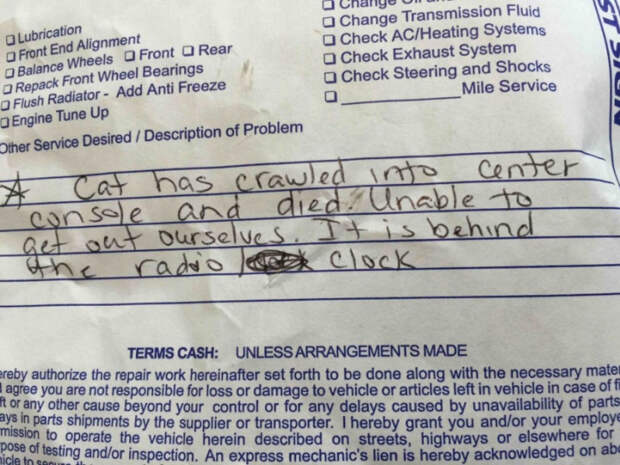 □ Lubrication
□ Front End Alignment
□ Balance Wheels □ Front □ Rear
□ Repack Front Wheel Bearings
□ Flush Radiator - Add Anti Freeze
□ Engine Tune Up
□ Change Oil and
□ Change Transmission Fluid
□ Check AC/Heating Systems
□ Check Exhaust System
□ Check Steering and Shocks
□ ____________ Mile Service
ST SIGN
Other Service Desired / Description of Problem
☆ Cat has crawled into center
console and died. Unable to
get out ourselves. It is behind
the radio clock
TERMS CASH: UNLESS ARRANGEMENTS MADE
ereby authorize the repair work hereinafter set forth to be done along with the necessary mater
agree you are not responsible for loss or damage to vehicle or articles left in vehicle in case of fi
ft or any other cause beyond your control or for any delays caused by unavailability of parts
ays in parts shipments by the supplier or transporter. I hereby grant you and/or your employe
mission to operate the vehicle herein described on streets, highways or elsewhere for
pose of testing and/or inspection. An express mechanic's lien is hereby acknowledged on abo
hicle to secure